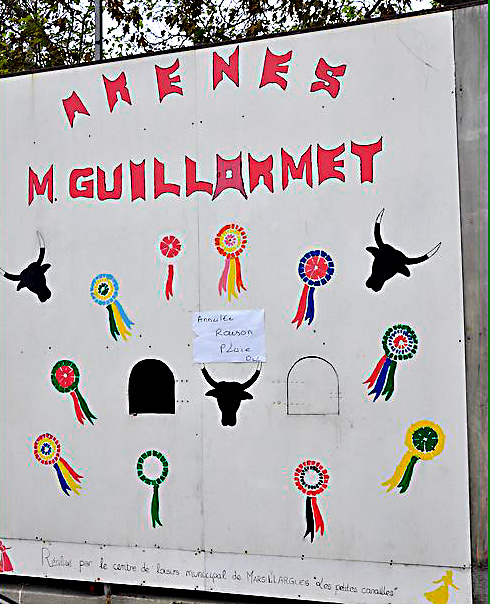 ARENES
M. GUILLARMET
Annulée
Raison
Pluie
Réalisé par le centre de loisirs municipal de MARSILLARGUES "Les petites canailles"